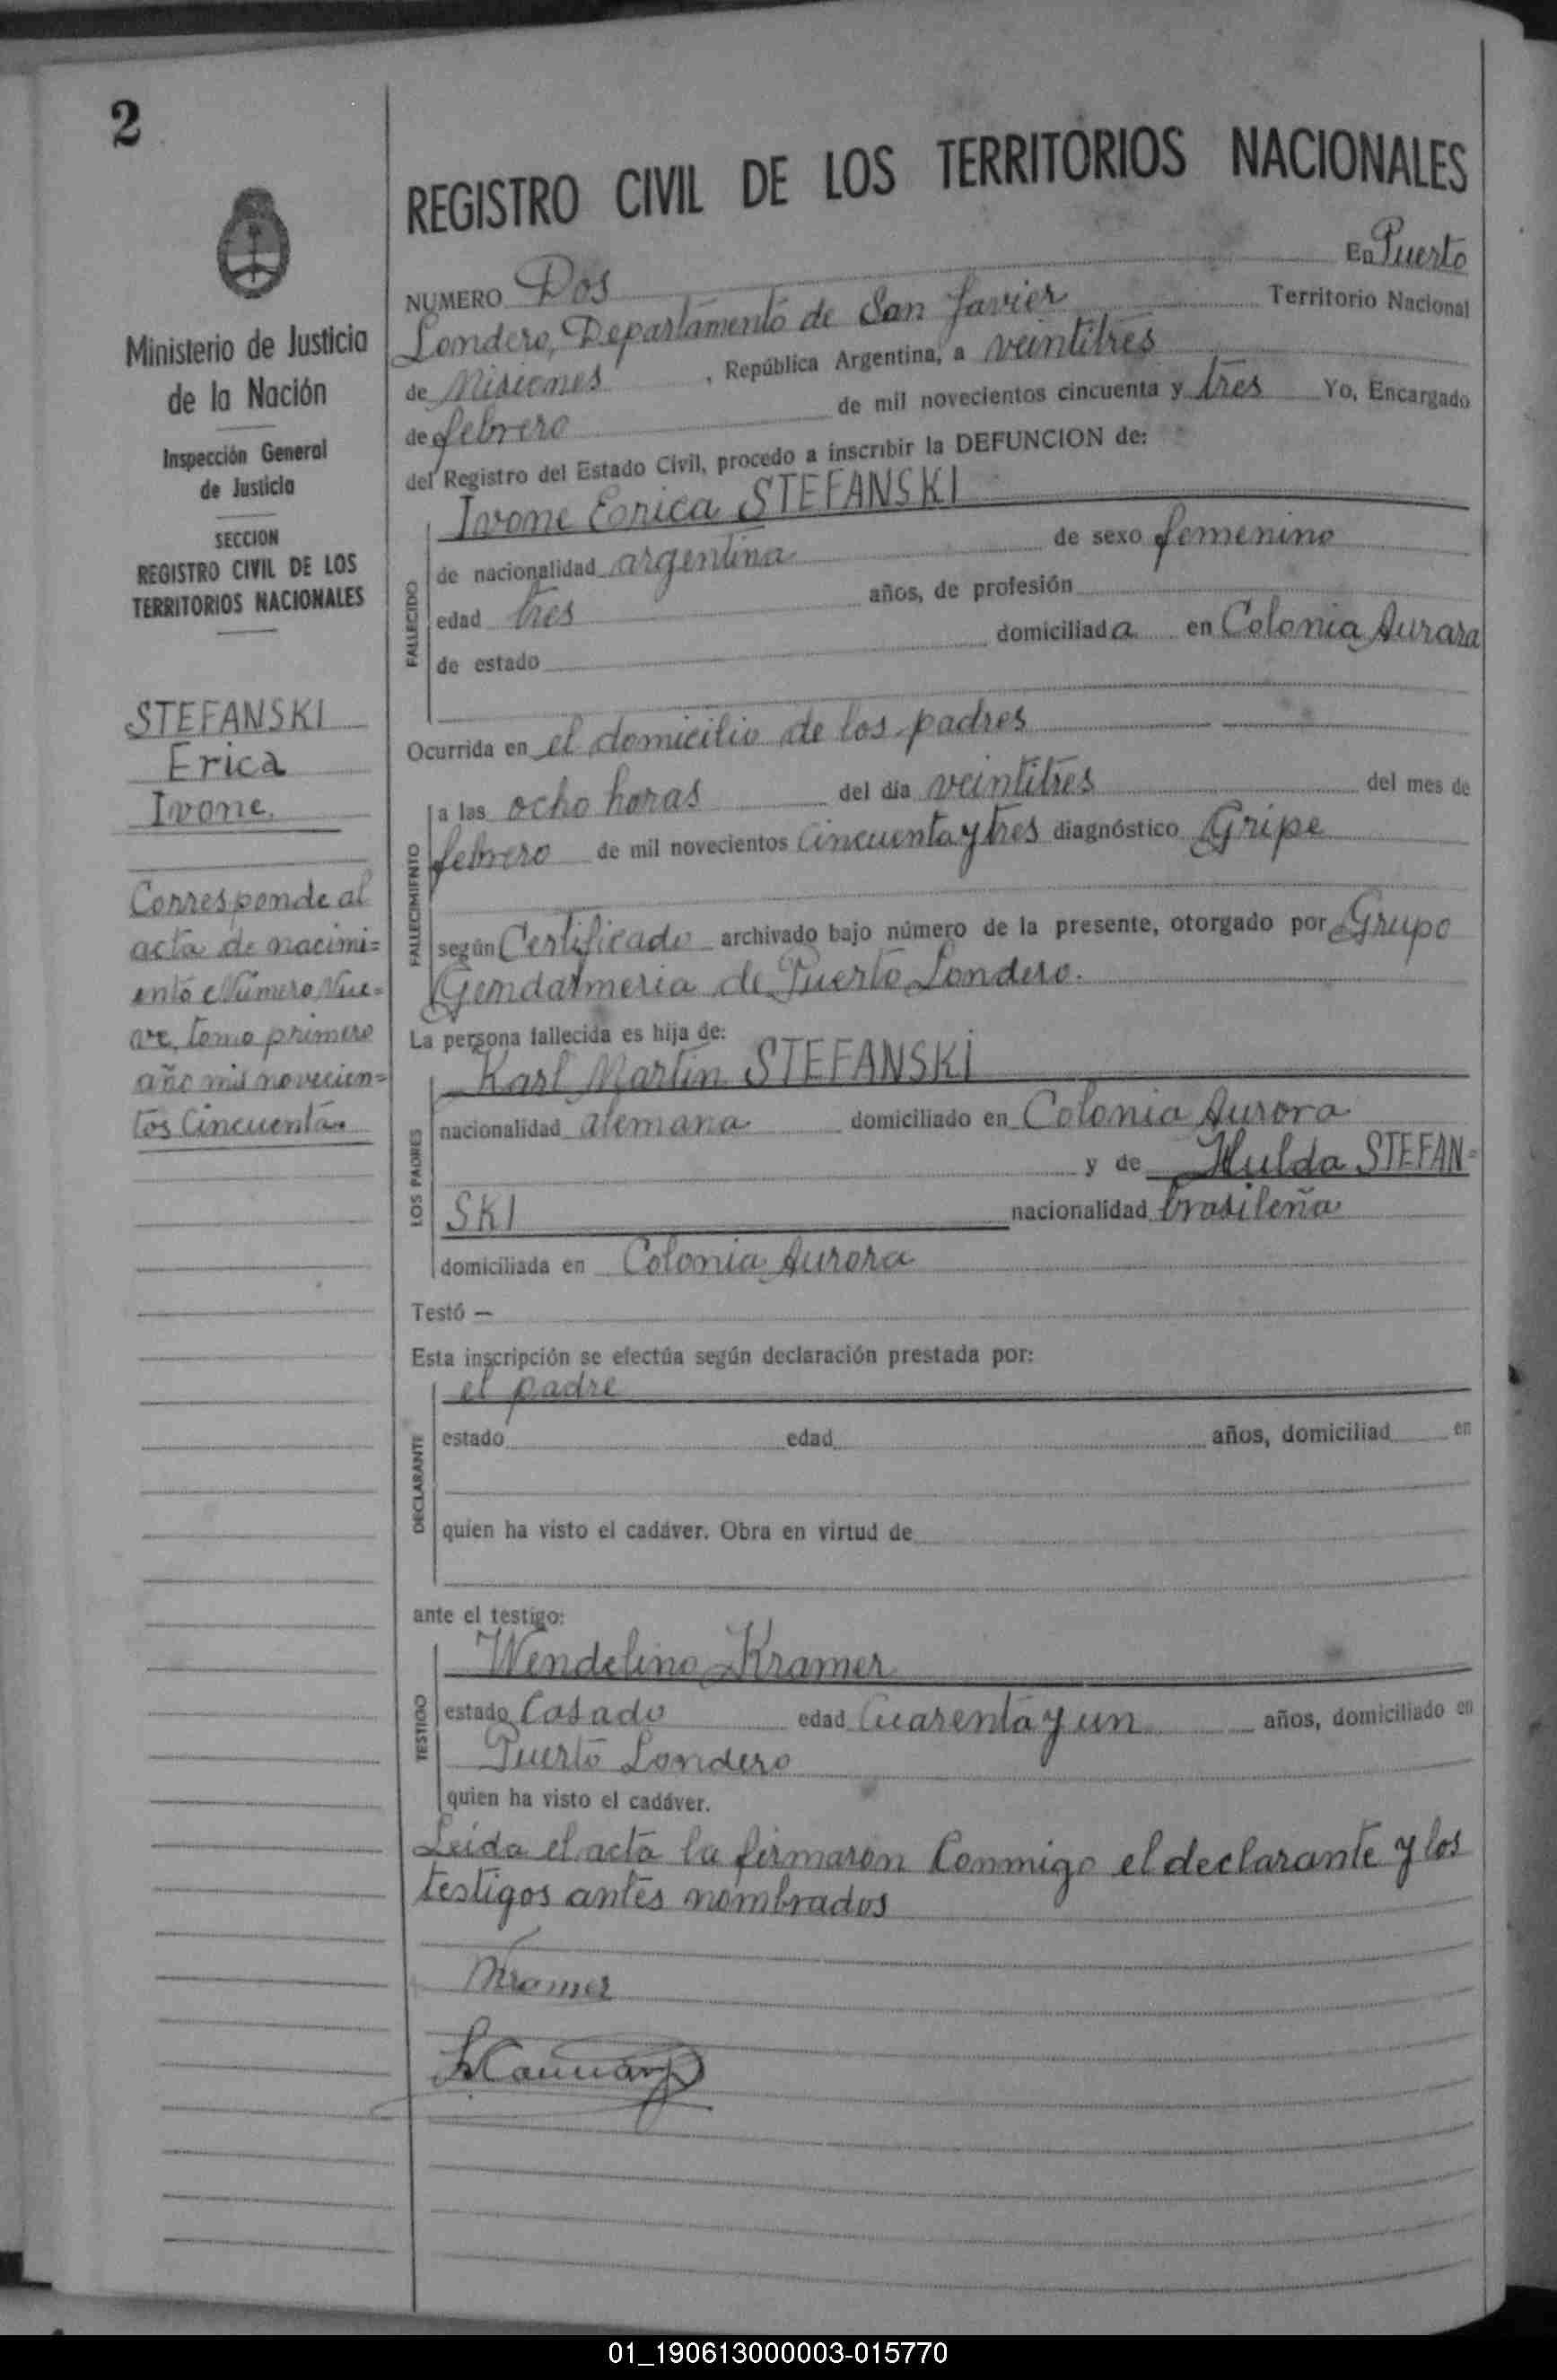 2
Ministerio de Justicia
de la Nación
Inspección General
de Justicia
SECCION
REGISTRO CIVIL DE LOS
TERRITORIOS NACIONALES
STEFANSKI
Erica
Ivone.
Corresponde al
acta de nacimi=
ento Número Nue=
ve, tomo primero
año mil novecien=
tos Cincuenta.
REGISTRO CIVIL DE LOS TERRITORIOS NACIONALES
NUMERO Dos En Puerto
Londero, Departamento de San Javier Territorio Nacional
de Misiones , República Argentina, a veintitres
de febrero de mil novecientos cincuenta y tres Yo, Encargado
del Registro del Estado Civil, procedo a inscribir la DEFUNCION de:
Ivone Erica STEFANSKI
FALLECIDO
de nacionalidad argentina de sexo femenino
edad tres años, de profesión
de estado domiciliada en Colonia Aurora
Ocurrida en el domicilio de los padres
FALLECIMIENTO
a las ocho horas del día veintitres del mes de
febrero de mil novecientos Cincuenta y tres diagnóstico Gripe
según Certificado archivado bajo número de la presente, otorgado por Grupo
Gendarmeria de Puerto Londero.
La persona fallecida es hija de:
LOS PADRES
Karl Martin STEFANSKI
nacionalidad alemana domiciliado en Colonia Aurora
y de Hulda STEFAN=
SKI nacionalidad brasileña
domiciliada en Colonia Aurora
Testó —
Esta inscripción se efectúa según declaración prestada por:
DECLARANTE
el padre
estado edad años, domiciliad en
quien ha visto el cadáver. Obra en virtud de
ante el testigo:
TESTIGO
Wendelino Kramer
estado Casado edad Cuarenta y un años, domiciliado en
Puerto Londero
quien ha visto el cadáver.
Leida el acta la firmaron Conmigo el declarante y los
testigos antes nombrados
Kramer
01_190613000003-015770